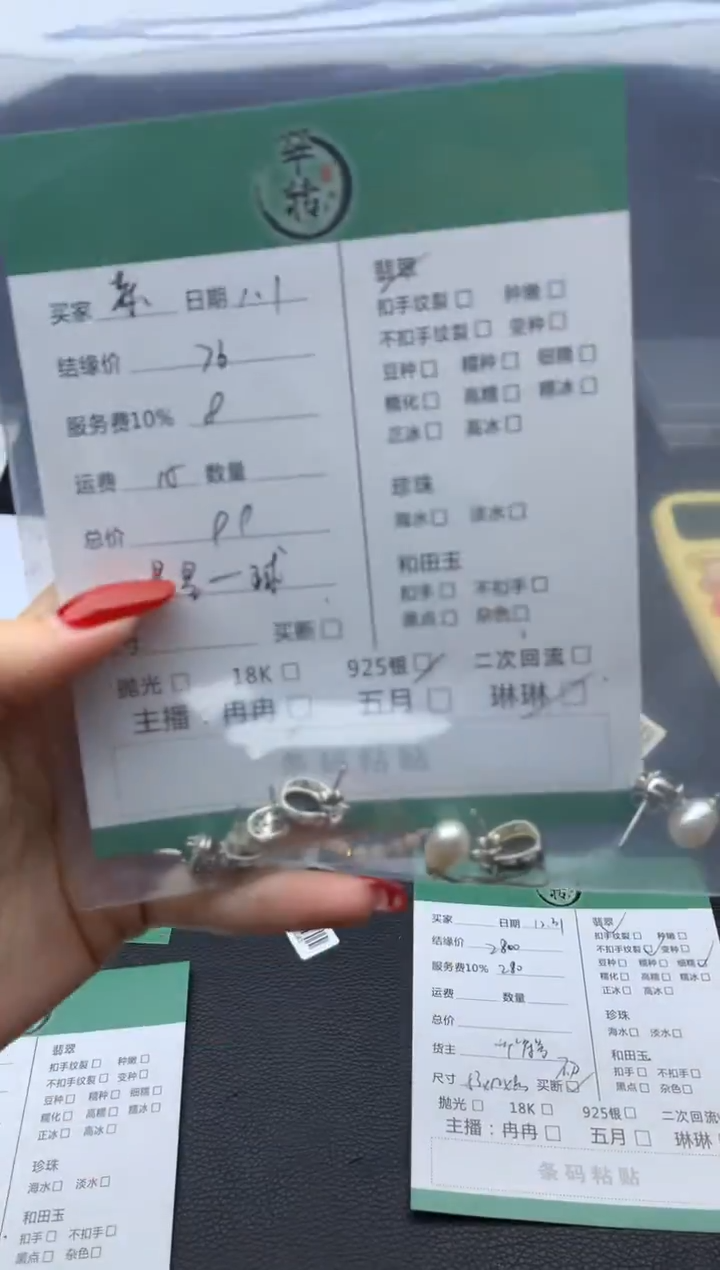 买家 日期 1.1
结缘价 76
服务费10% 8
运费 15 数量
总价 99
一球
买断
抛光 18K 925银 二次回流
主播：冉冉 五月 琳琳
条码粘贴
翡翠
扣手纹裂 种嫩
不扣手纹裂 变种
豆种 糯种 细糯
糯化 高糯 糯冰
正冰 高冰
珍珠
海水 淡水
和田玉
扣手 不扣手
黑点 杂色
买家 日期 12.31
结缘价 2800
服务费10% 280
运费 数量
总价
货主
尺寸 买断
抛光 18K 925银 二次回流
主播：冉冉 五月 琳琳
条码粘贴
翡翠
扣手纹裂 种嫩
不扣手纹裂 变种
豆种 糯种 细糯
糯化 高糯 糯冰
正冰 高冰
珍珠
海水 淡水
和田玉
扣手 不扣手
黑点 杂色
翡翠
扣手纹裂 种嫩
不扣手纹裂 变种
豆种 糯种 细糯
糯化 高糯 糯冰
正冰 高冰
珍珠
海水 淡水
和田玉
扣手 不扣手
黑点 杂色